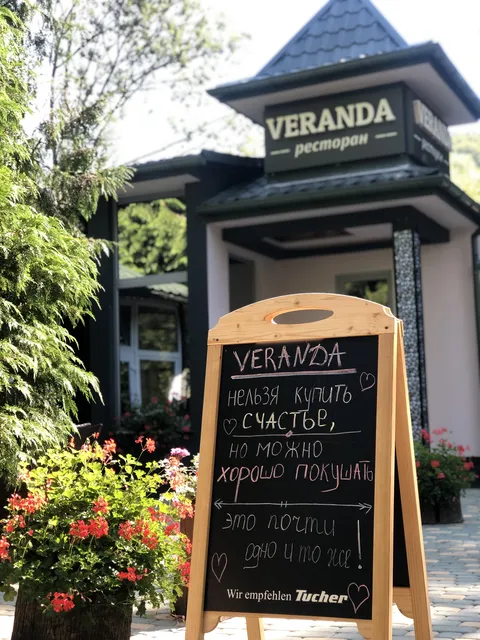 VERANDA
ресторан
VERANDA
НЕЛЬЗЯ КУПИТЬ
СЧАСТЬЕ,
НО МОЖНО
ХОРОШО ПОКУШАТЬ
ЭТО ПОЧТИ
ОДНО И ТО ЖЕ!
Wir empfehlen Tucher